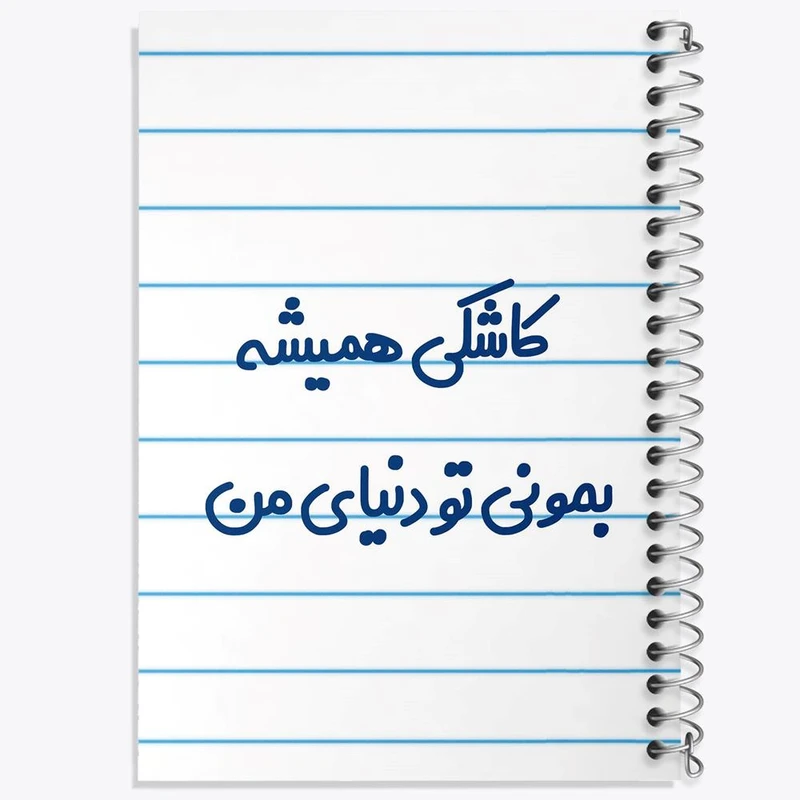 کاشکی همیشه
بمونی تو دنیای من